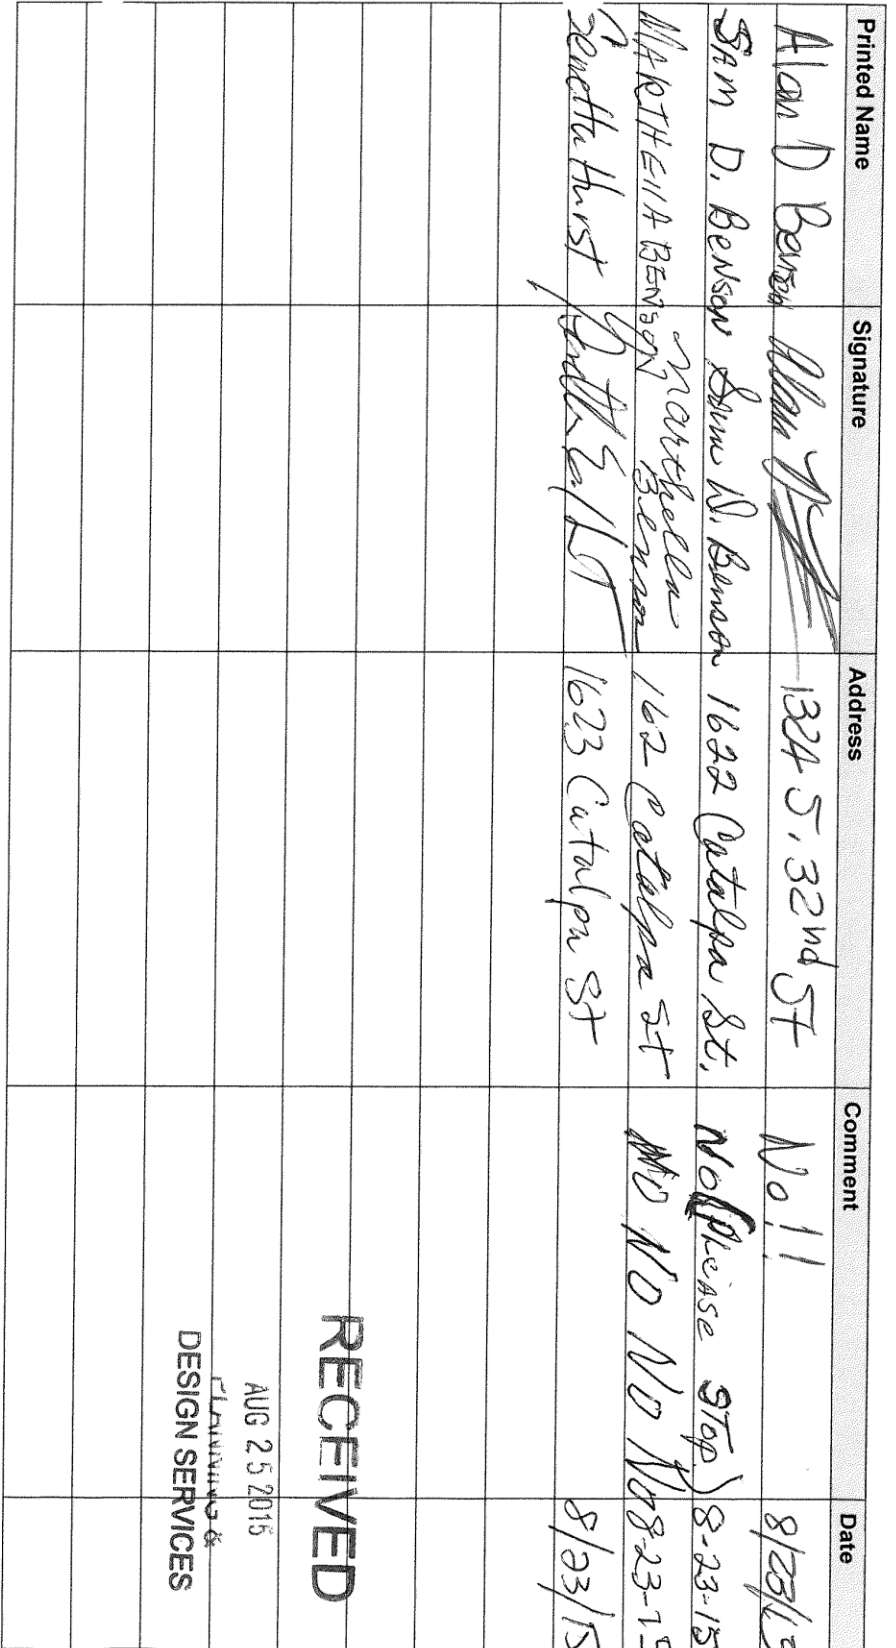 Printed Name Signature Address Comment Date
Alan D Benson Alan 1324 S. 32nd St No!! 8/23/15
SAM D. BENSON Sam D. Benson 1622 Catalpa St. No (Please STop) 8-23-15
MARTHEllA BENSON Marthella Benson 162 Catalpa St NO NO NO NO No 8-23-15
Genetta Hurst 1623 Catalpa St 8/23/15
RECEIVED
AUG 25 2015
PLANNING &
DESIGN SERVICES